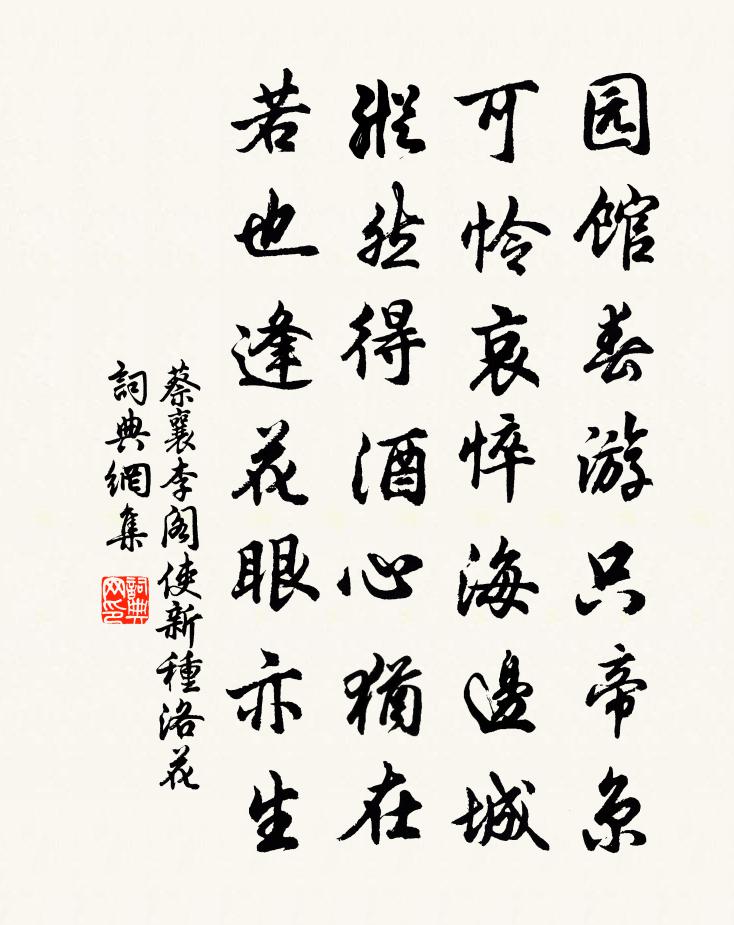 园馆春游只帝京
可怜哀悴海邊城
縱然得酒心猶在
若也逢花眼亦生
蔡襄李阁使新種洛花
詞典網集
詞典网印